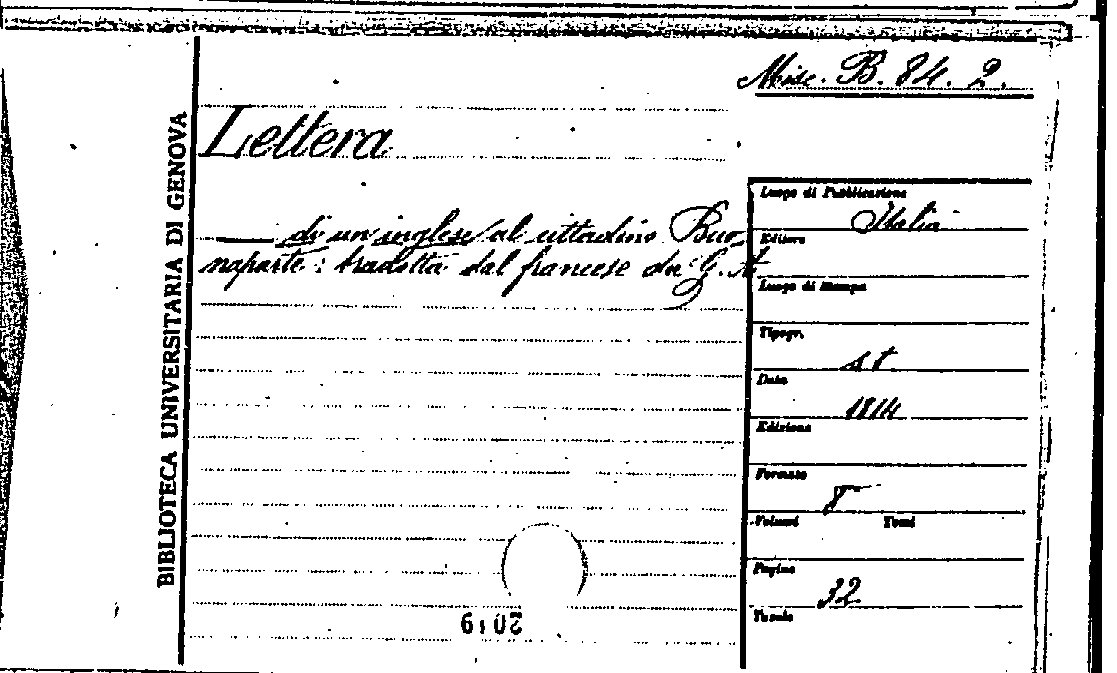 Misc. B. 84. 2.
BIBLIOTECA UNIVERSITARIA DI GENOVA
Lettera
di un inglese al cittadino Buo
naparte: tradotta dal francese da G. A
Luogo di Pubblicazione
Italia
Editore
Luogo di Stampa
Tipogr.
s t
Data
1814
Edizione
Formato
8
Volumi Tomi
Pagine
32
Tavole
2019